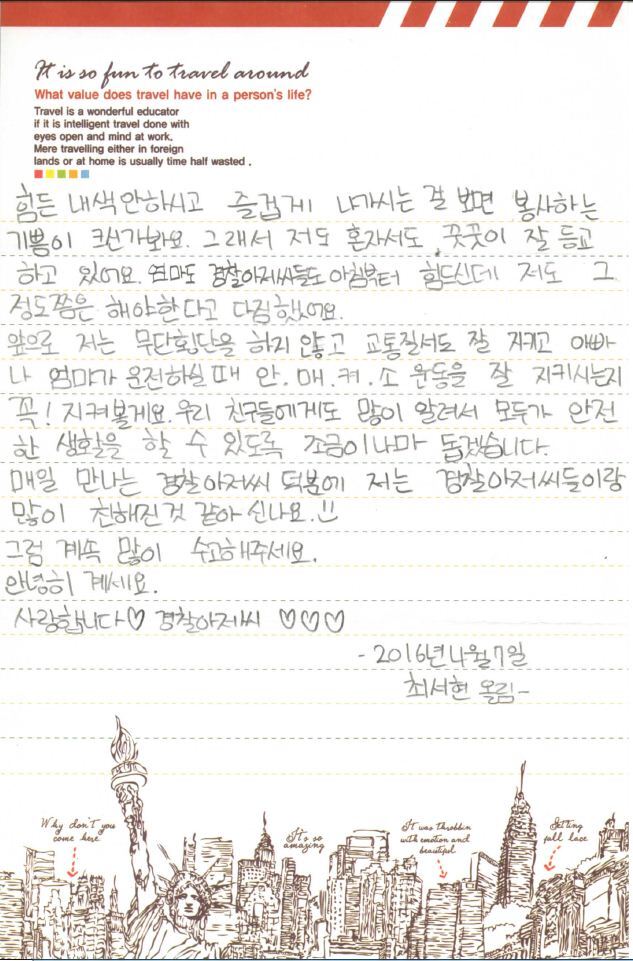 It is so fun to travel around
What value does travel have in a person's life?
Travel is a wonderful educator
if it is intelligent travel done with
eyes open and mind at work.
Mere travelling either in foreign
lands or at home is usually time half wasted .
힘든 내색 안하시고 즐겁게 나가시는 걸 보면 봉사하는
기쁨이 크신가봐요. 그래서 저도 혼자서도 꿋꿋이 잘 등교
하고 있어요. 엄마도 경찰아저씨들도 아침부터 힘드신데 저도 그
정도쯤은 해야한다고 다짐했어요.
앞으로 저는 무단횡단을 하지 않고 교통질서도 잘 지키고 아빠
나 엄마가 운전하실 때 안.매.켜.소 운동을 잘 지키시는지
꼭! 지켜볼게요. 우리 친구들에게도 많이 알려서 모두가 안전
한 생활을 할 수 있도록 조금이나마 돕겠습니다.
매일 만나는 경찰아저씨 덕분에 저는 경찰아저씨들이랑
많이 친해진 것 같아 신나요.!!
그럼 계속 많이 수고해주세요.
안녕히 계세요.
사랑합니다♡ 경찰아저씨 ♡♡♡
- 2016년 4월 7일
최서현 올림-
Why don't you
come here
It's so
amazing
It was throbbin
with emotion and
beautiful
Setting
fall lace